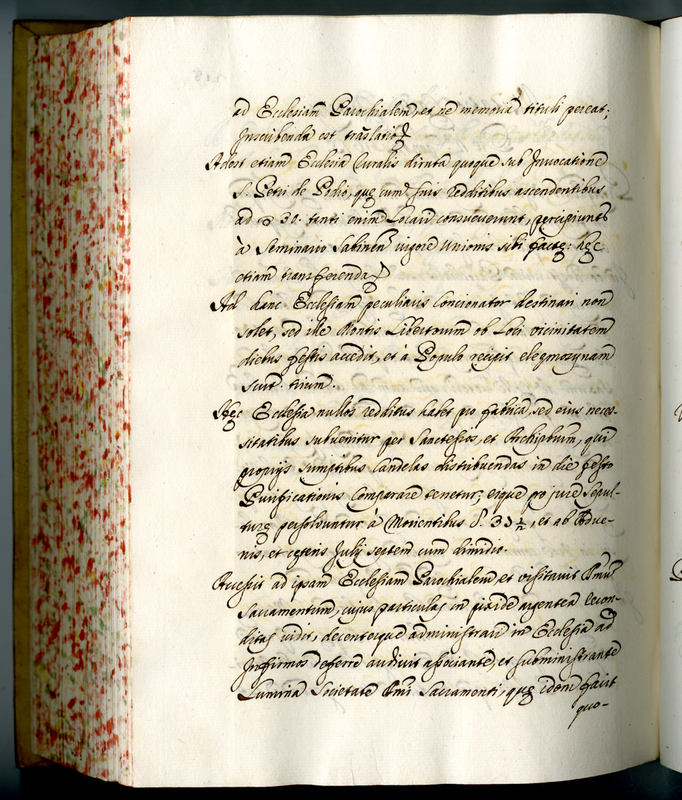 ad Ecclesiam Parochialem, et ne memoria tituli pereat,
Inscribenda est translatio
Adest etiam Ecclesia Curalis diruta quoque sub Invocatione
S. Petri de Podio, quę cum suis redditibus ascendentibus
ad 30 tanti enim Locari consueverunt, percipiuntr
à Seminario Sabinen vigore Unionis sibi factę: hęc
etiam transferenda
Ad hanc Ecclesiam peculiaris Concionator destinari non
solet, sed ille Montis Libretorum ob Loci vicinitatem
diebus festis accedit, et à Populo recipit eleęmosynam
scut. trium.
Hęc Ecclesia nullos redditus habet pro fabrica, sed eius neces-
sitatibus subvenitur per Sanctesios, et Archiptum, qui
proprijs sumptibus Candelas distribuendas in die festo
Purificationis Comparare tenetur; eique pro jure sepul-
turę persolvuntur à Morientibus 33 1/2, et ab Adve-
nis, et cęteris Julij septem cum dimidio.
Accessit ad ipsam Ecclesiam Parochialem, et visitavit Smu
Sacramentum, cujus particulas in pixide argentea recon-
ditas vidit, decenterque administrari in Ecclesia ad
Infirmos deferre audivit associante, et subministrante
Lumina Societate Smi Sacramenti, quę idem facit
quo-